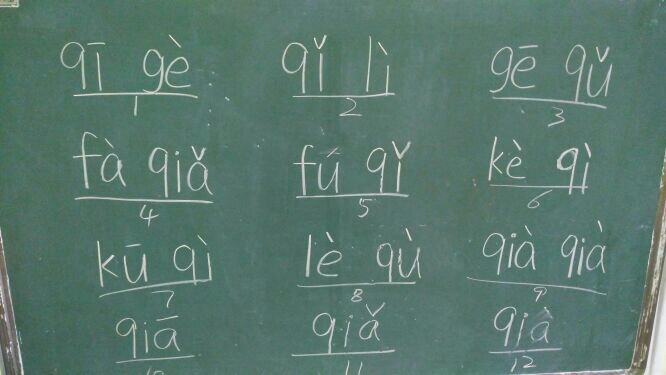 qī gè qǐ lì gē qǔ
1 2 3
fà qiǎ fú qǐ kè qì
4 5 6
kū qì lè qù qià qià
7 8 9
qiā qiǎ qiá
10 11 12